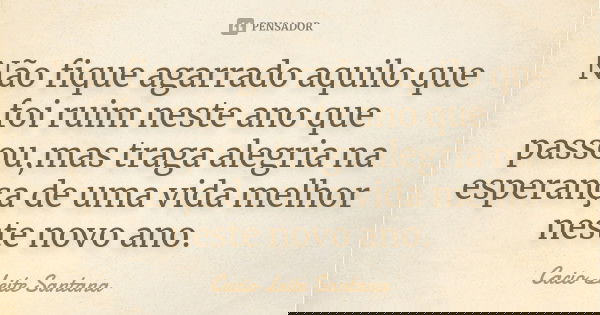 PENSADOR
Não fique agarrado aquilo que
foi ruim neste ano que
passou, mas traga alegria na
esperança de uma vida melhor
neste novo ano.
Cacio Leite Santana